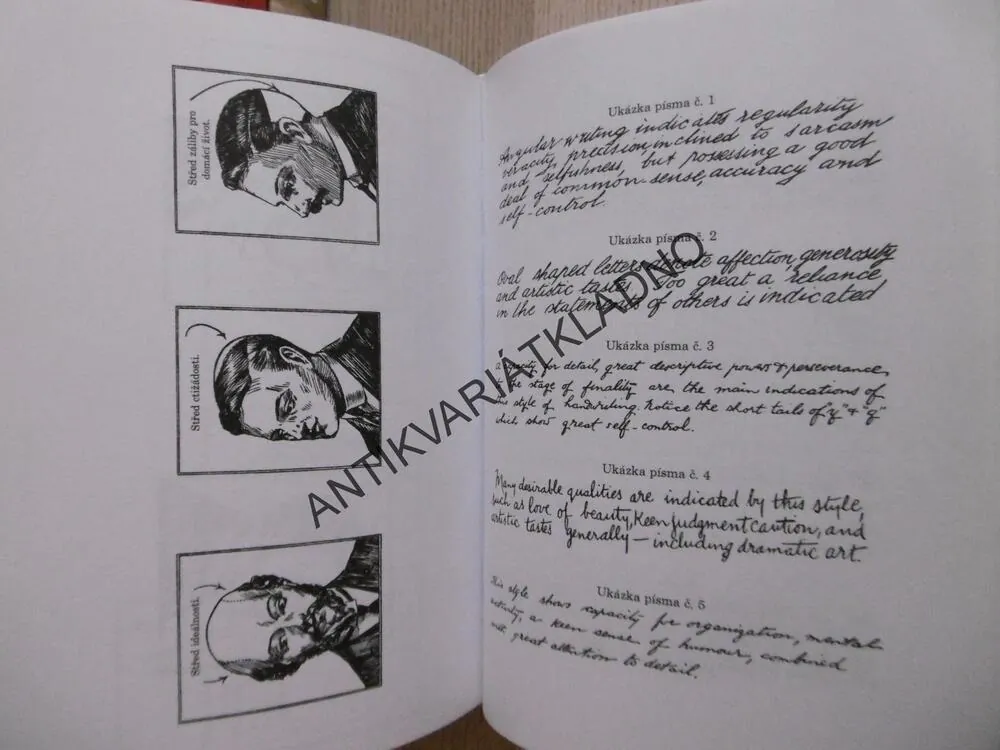 Střed záliby pro
domácí život.
Střed ctižádosti.
Střed ideálnosti.
Ukázka písma č. 1
Angular writing indicates regularity
veracity, precision, inclined to sarcasm
and selfishness, but possessing a good
deal of common-sense, accuracy and
self-control.
Ukázka písma č. 2
Oval shaped letters denote affection, generosity
and artistic taste. Too great a reliance
in the statements of others is indicated
Ukázka písma č. 3
capacity for detail, great descriptive power & perseverance,
the stage of finality are the main indications of
this style of handwriting. Notice the short tails of "y" & "g"
which show great self-control.
Ukázka písma č. 4
Many desirable qualities are indicated by this style,
such as love of beauty, Keen judgment caution, and
artistic tastes generally — including dramatic art.
Ukázka písma č. 5
This style shows capacity for organization, mental
activity, a keen sense of humour, combined
with great attention to detail.
ANTIKVARIÁTKLADNO